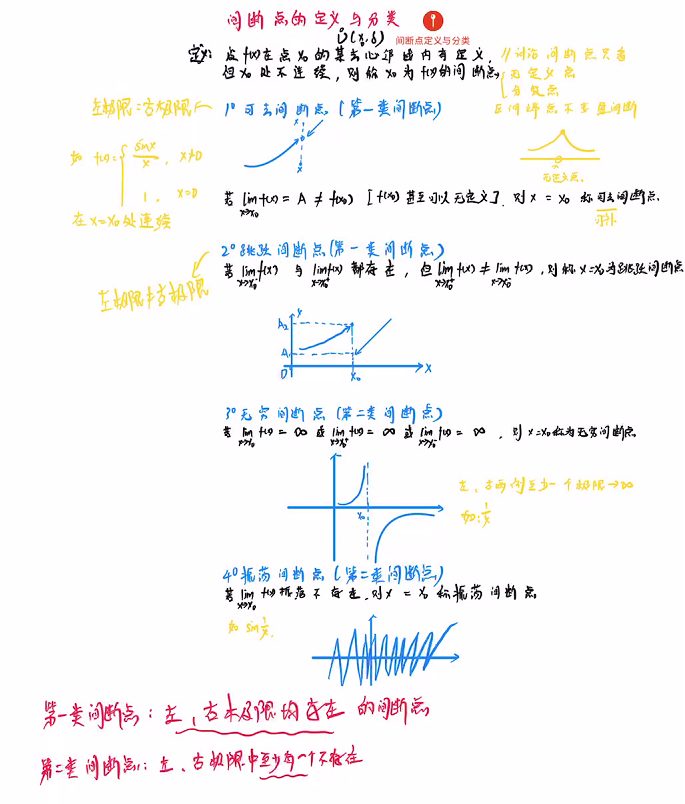 间断点的定义与分类
间断点定义与分类
Ů(x₀,δ)
定义: 设f(x)在点x₀的某去心邻域内有定义,
但x₀处不连续, 则称x₀为f(x)的间断点
//讨论间断点只看
无定义点
分段点
区间端点不考虑间断
左极限=右极限
1° 可去间断点 (第一类间断点)
如 f(x)= { sinx/x , x≠0
1 , x=0
在x=x₀处连续
无定义点.
若 lim x→x₀ f(x) = A ≠ f(x₀) [f(x₀)甚至可以无定义]. 则x = x₀ 称可去间断点.
可补
2° 跳跃间断点(第一类间断点)
若 lim x→x₀⁻ f(x) 与 lim x→x₀⁺ f(x) 都存在, 但 lim x→x₀⁻ f(x) ≠ lim x→x₀⁺ f(x), 则称x=x₀为跳跃间断点
左极限≠右极限
y
A₂
A₁
O
x₀
x
3° 无穷间断点 (第二类间断点)
若 lim x→x₀ f(x) = ∞ 或 lim x→x₀⁺ f(x) = ∞ 或 lim x→x₀⁻ f(x) = ∞ , 则x=x₀称为无穷间断点
左、右两侧至少一个极限→∞
如: 1/x
x₀
4° 振荡间断点 (第二类间断点)
若 lim x→x₀ f(x) 振荡不存在, 则x = x₀ 称振荡间断点
如 sin 1/x.
第一类间断点: 左、右极限均存在 的间断点
第二类间断点: 左、右极限中至少有一个不存在